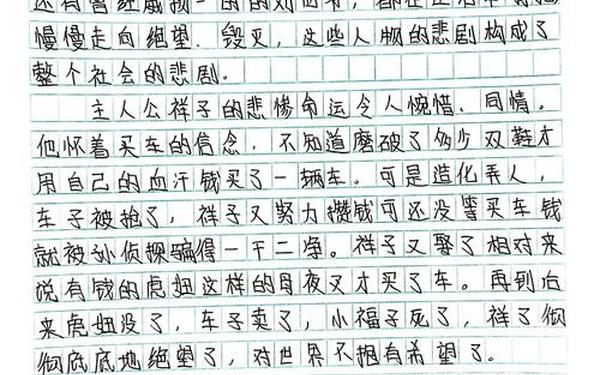 还有曾经威的刘四爷，都在生活中
慢慢走向绝望、毁灭，这些人物的悲剧构成了
整个社会的悲剧。
主人公祥子的悲惨命运令人惋惜、同情。
他怀着买车的信念，不知道磨破了多少双鞋才
用自己的血汗钱买了一辆车。可是造化弄人，
车子被抢了，祥子又努力攒钱可还没等买车钱
就被孙侦探骗得一干二净。祥子又娶了相对来
说有钱的虎妞这样的母夜叉才买了车。再到后
来虎妞没了，车子卖了，小福子死了，祥了彻
彻底底地绝望了，对世界不拥有希望了。